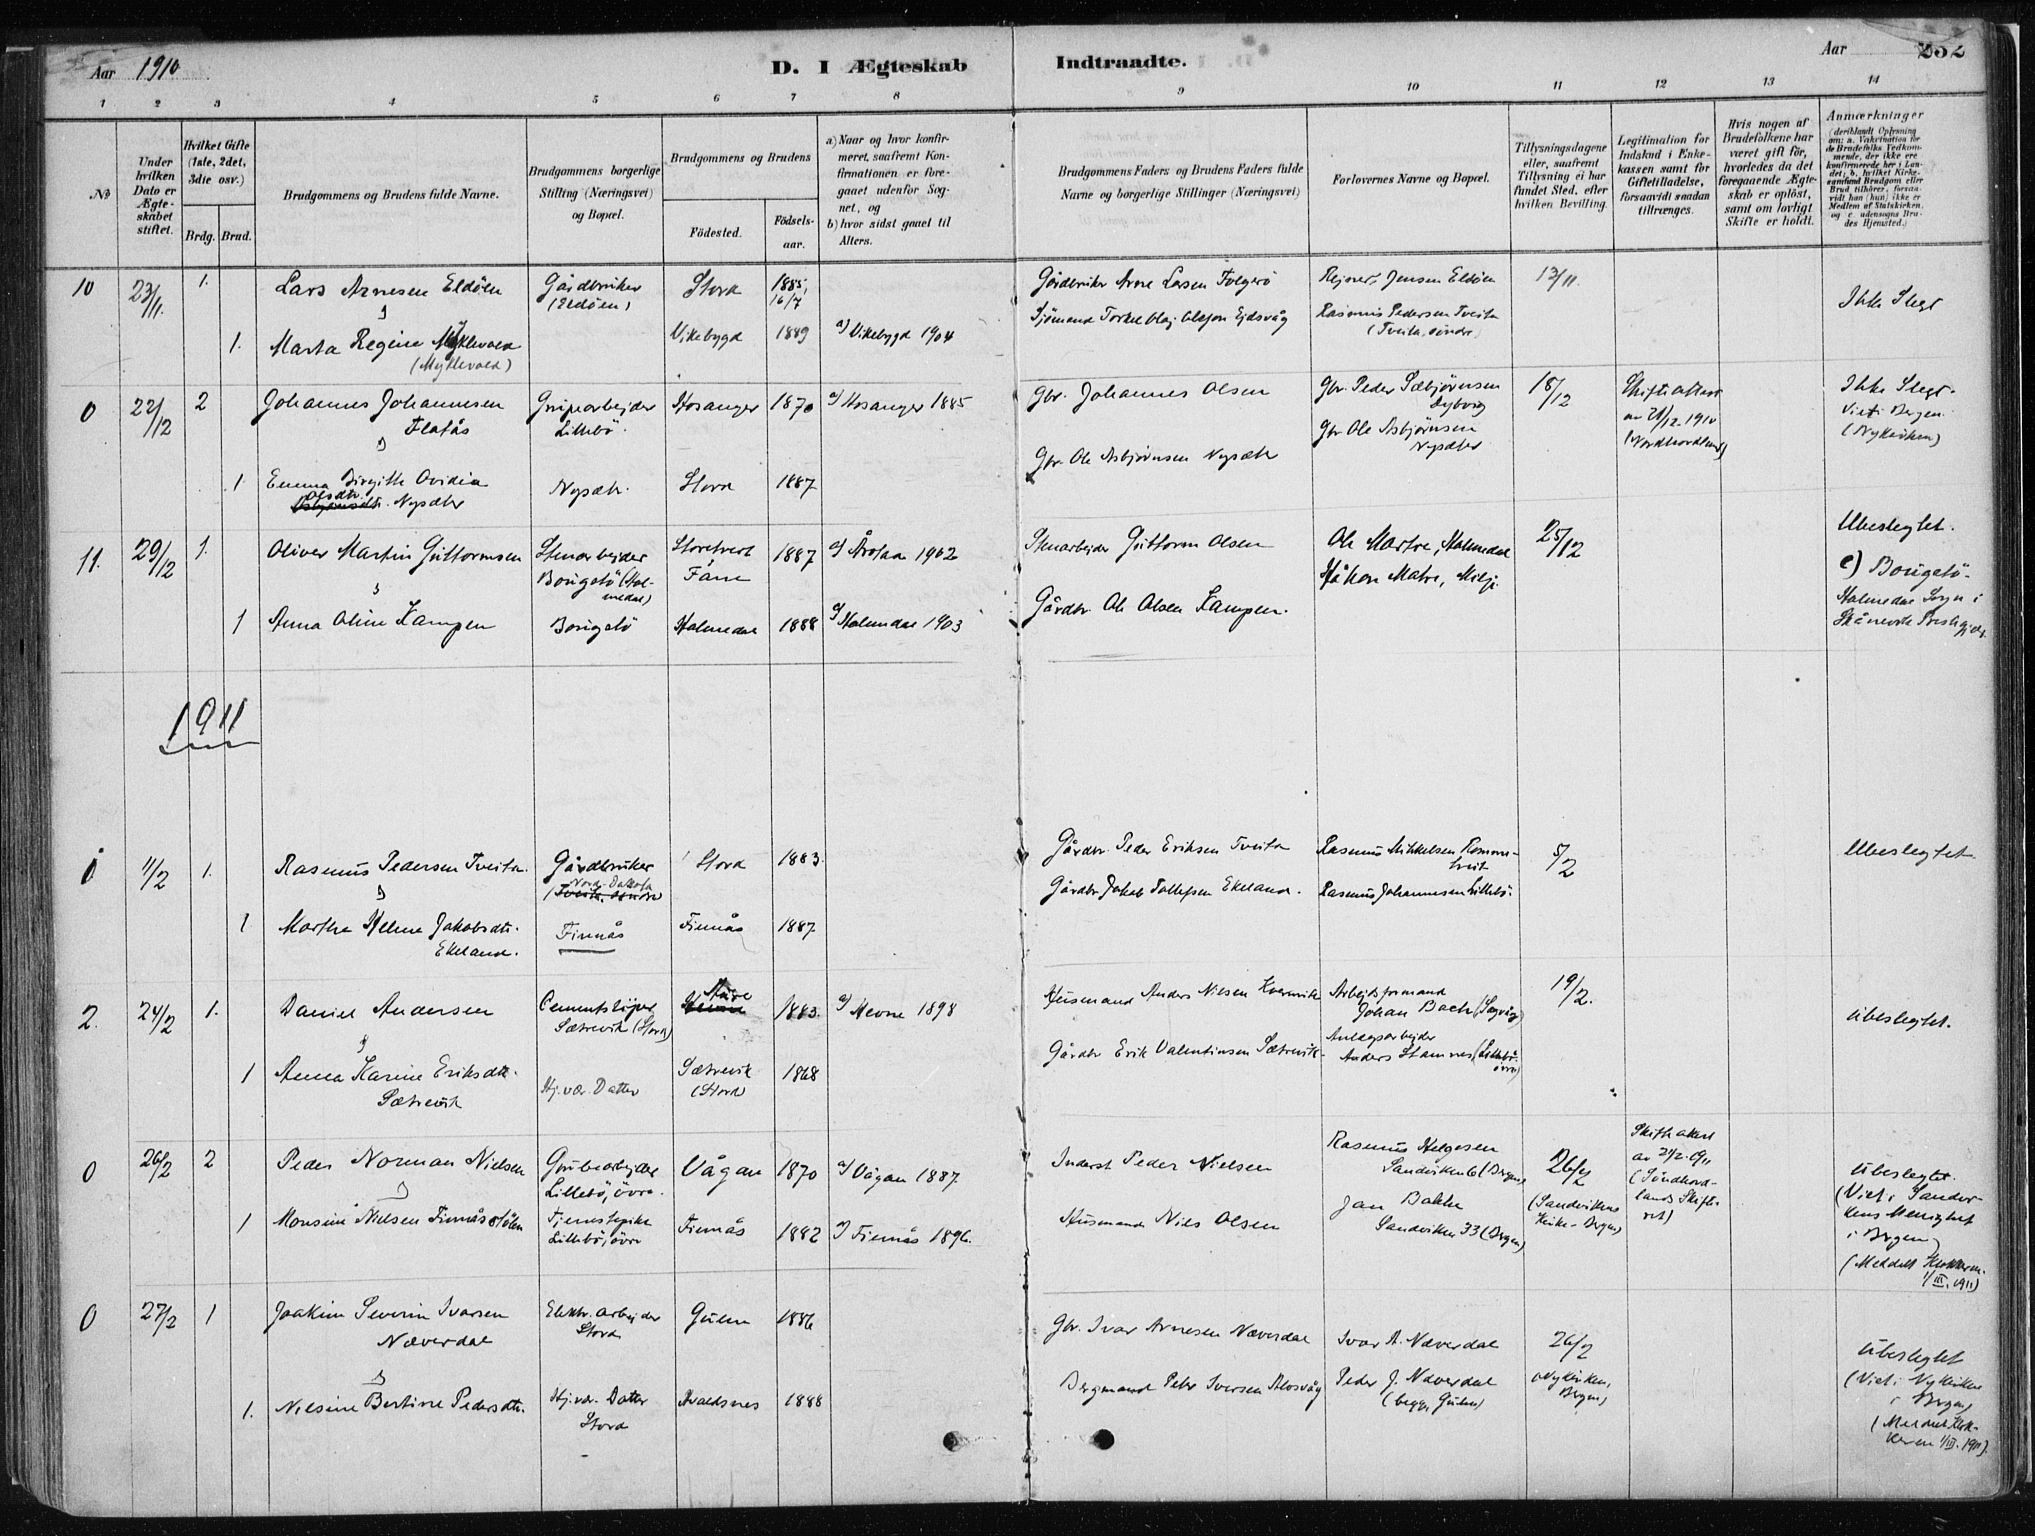 Aar 1910
D. I Ægteskab Indtraadte.
Aar 252
1 2 3 4 5 6 7 8 9 10 11 12 13 14
No
Under hvilken Dato er Ægteskabet stiftet.
Hvilket Gifte (1ste, 2det, 3die osv.)
Brdg. Brud.
Brudgommens og Brudens fulde Navne.
Brudgommens borgerlige Stilling (Næringsvei) og Bopæl.
Brudgommens og Brudens
Fødested.
Fødselsaar.
a) Naar og hvor konfirmeret, saafremt Konfirmationen er foregaaet udenfor Sognet, og
b) hvor sidst gaaet til Alters.
Brudgommens Faders og Brudens Faders fulde Navne og borgerlige Stillinger (Næringsvei)
Forlovernes Navne og Bopæl.
Tillysningsdagene eller, saafremt Tillysning ei har fundet Sted, efter hvilken Bevilling.
Legitimation for Indskud i Enkekassen samt for Giftetilladelse, forsaavidt saadan tiltrænges.
Hvis nogen af Brudefolkene har været gift før, hvorledes da det foregaaende Ægteskab er opløst, samt om lovligt Skifte er holdt.
Anmærkninger
(deriblandt Oplysning om: a. Vaksination for de Brudefolks Vedkommende, der ikke ere konfirmerede her i Landet; b. hvilket Kirkesamfund Brudgom eller Brud tilhører, forsaavidt han (hun) ikke er Medlem af Statskirken, og c. udensogns Brudes Hjemsted.)
10 23/11. 1. Lars Arnesen Eldøen Gårdbruker (Eldøen) Stord 1885, 16/7 Gårdbruker Arne Larsen Folgerø Jensen Eldøen 13/11. Ikke Slegt
&
1. Marta Regine Myklevold (Myklevold) Vikebygd 1889 a) Vikebygd 1904 Sjømand Torkel Olaj Olsson Ejdsvåg Rasmus Pedersen Tveita (Tveita, søndre)
0 22/12 2 Johannes Johannesen Flatås Lillebö Hosanger 1870 a) Hosanger 1885 Gbr. Johannes Olsen Gbr. Peder Sæbjørnsen Dybvig 18/12 Skifteattest av 21/12 1910 (Nordhordland) Ikke Slegt. Viet i Bergen (Nykirken)
&
1 Emma Birgithe Ovidia Olsdtr. Nysæter Nysæter Stord 1887 Gbr. Ole Asbjørnsen Nysæter Gbr Ole Asbjørnsen Nysæter
11. 29/12 1. Oliver Martin Guttormsen Stenarbejder Borgestö (Holmedal) Fåne 1887 a) 1902 Stenarbejder Guttorm Olsen Ole Matre, Holmedal 25/12 Ubeslegtet.
&
1 Anna Oline Kampen Holmedal 1888 a) Holmedal 1903 Gårdbr. Ole Olsen Kampen. Håkon Matre, c) Holmedal Sogn i Skånevik Prestegjeld
1911
1 11/2 1. Rasmus Pedersen Tveita Gårdbruker Nord-Dakota (Tveita, söndre) Stord 1883. Gårdbr Peder Eriksen Tveita Rasmus Mikkelsen 5/2 Ubeslegtet
&
1 Martha Helene Jakobsdtr. Ekeland. Finnås Finnås 1887 Gårdbr Jakob Tollefsen Ekeland. Rasmus Johannessen Lillebö.
2. 24/2 1. Daniel Andersen Sætrevik (Stord) 1883. a) Hevne 1898 Husmand Anders Nielsen Arbejdsformand Johan Bach (Sagvåg) 19/2. Ubeslegtet.
&
1 Anna Karine Eriksdtr. Sætrevik Hj.vær. Datter Sætrevik (Stord) 1868 Gårdbr Erik Valentinsen Sætrevik Anlægsarbejder Anders Stamnes (Lillebö, övre)
0 26/2 2 Peder Norman Nielsen Grubearbejder Lillebö, övre. Vågan 1870 a) Vågan 1887 Inderst Peder Nielsen Rasmus Helgesen Sandviken 6 (Bergen) 26/2 (Sandvikens Kirke - Bergen) Skifteattest av 24/2 1911 (Söndhordlands Skifteret) Ubeslegtet. (Viet i Sandvikens Menighet i Bergen) (Meddelt Klokkeren 1/III. 1911)
&
1 Monsine Nielsen Tjenestepike Lillebö, övre Finnås 1882 a) Finnås 1896. Husmand Niels Olsen Jan Bakke Sandviken 33 (Bergen)
0 27/2 1 Joakim Severin Ivarsen Næverdal Elektr. arbejder Stord Gulen 1886 Gbr. Ivar Arnesen Næverdal Ivar A. Næverdal 26/2 (Nykirken, Bergen) Ubeslegtet (Viet i Nykirken i Bergen) (Meddelt Klokkeren 1/III. 1911).
&
1. Nilsine Bertine Pedersdtr. Hj.vær. Datter Stord Avaldsnes 1888 Bergmand Peder Iversen Peder J. Næverdal (begge Gulen)